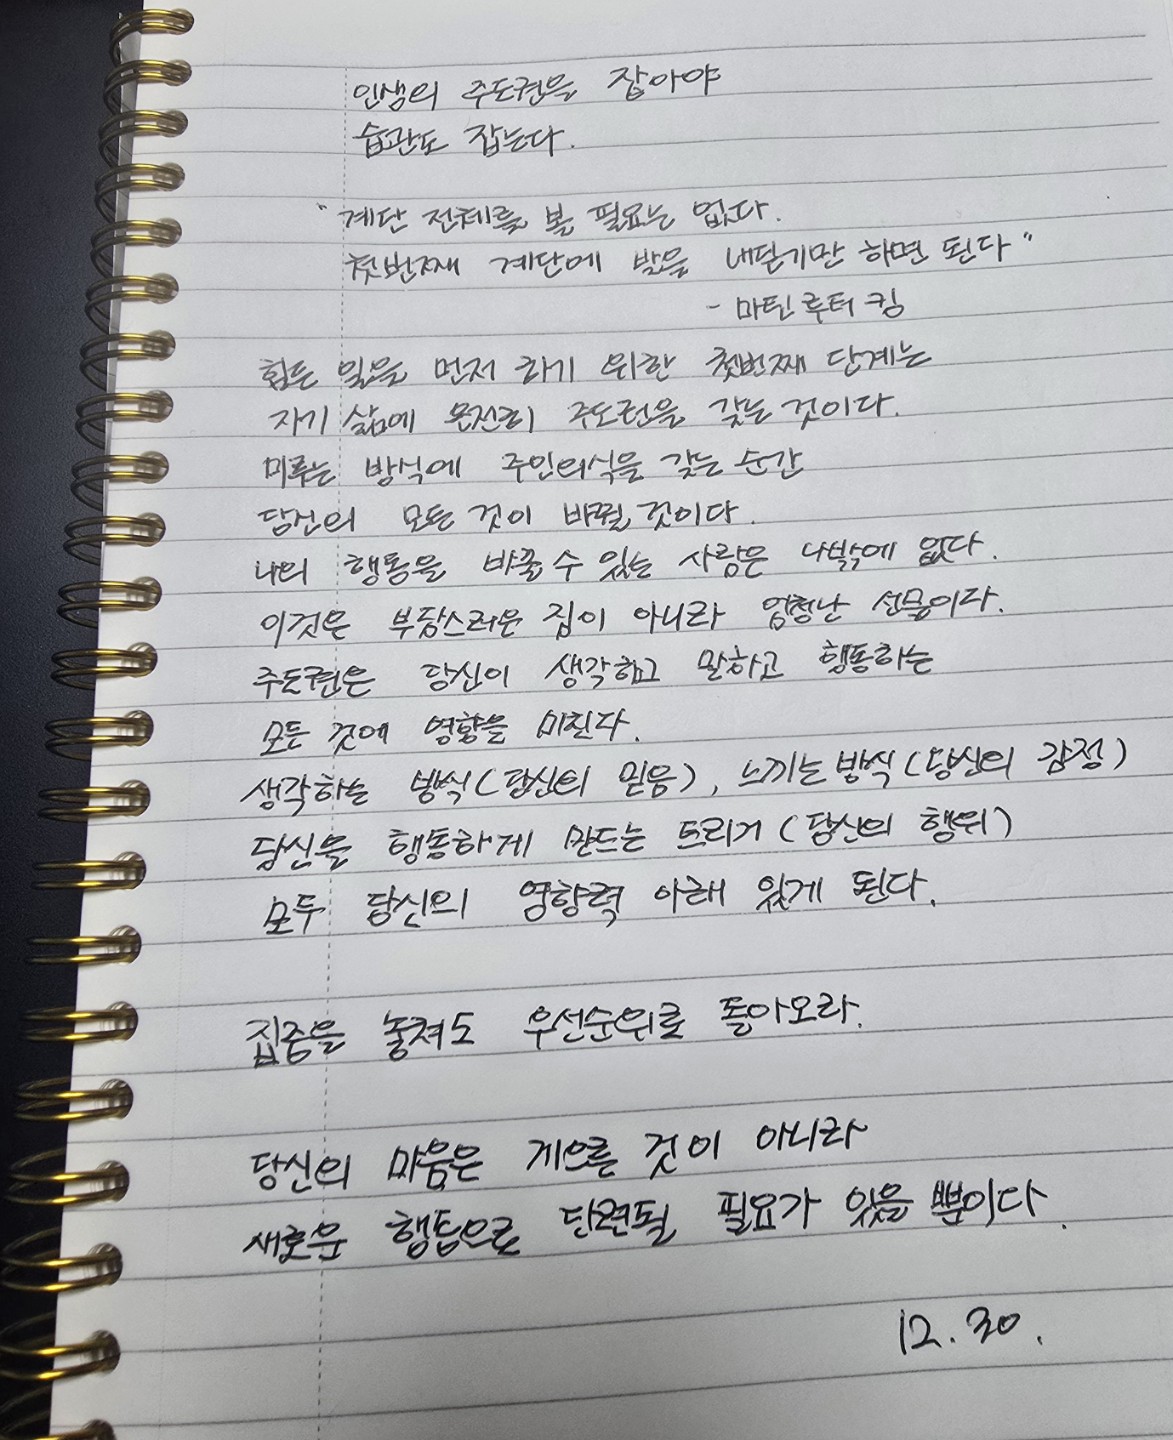 인생의 주도권을 잡아야
습관도 잡는다.
"계단 전체를 볼 필요는 없다.
첫번째 계단에 발을 내딛기만 하면 된다"
- 마틴 루터 킹
힘든 일을 먼저 하기 위한 첫번째 단계는
자기 삶에 온전히 주도권을 갖는 것이다.
미루는 방식에 주인의식을 갖는 순간
당신의 모든 것이 바뀔 것이다.
나의 행동을 바꿀 수 있는 사람은 나밖에 없다.
이것은 부담스러운 짐이 아니라 엄청난 선물이다.
주도권은 당신이 생각하고 말하고 행동하는
모든 것에 영향을 미친다.
생각하는 방식(당신의 믿음), 느끼는 방식(당신의 감정)
당신을 행동하게 만드는 트리거(당신의 행위)
모두 당신의 영향력 아래 있게 된다.
집중을 놓쳐도 우선순위로 돌아오라.
당신의 마음은 게으른 것이 아니라
새로운 행동으로 단련될 필요가 있을 뿐이다.
12.30.